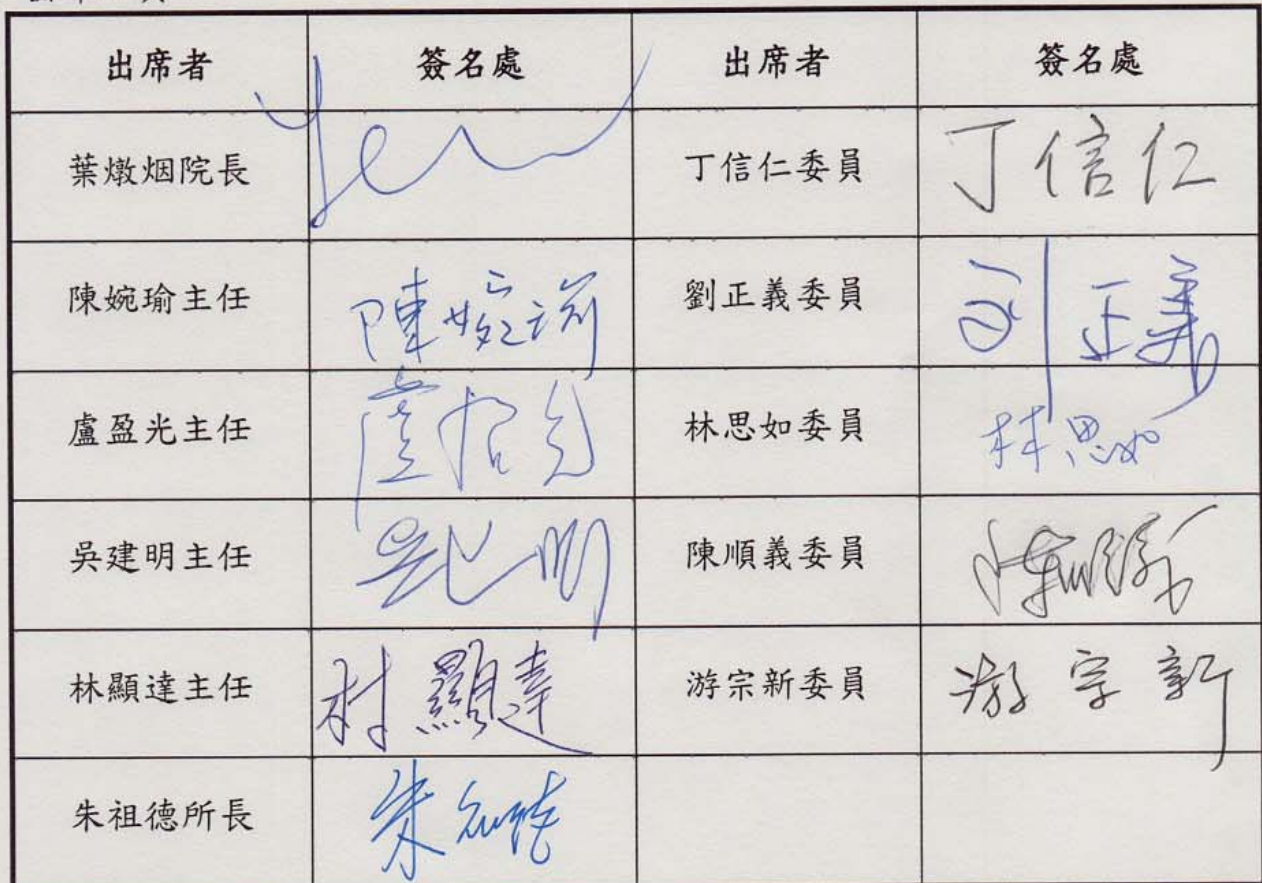 出席者 簽名處 出席者 簽名處
葉燉烟院長 Yen 丁信仁委員 丁信仁
陳婉瑜主任 陳婉瑜 劉正義委員 刘正義
盧盈光主任 盧盈光 林思如委員 林思如
吳建明主任 吳建明 陳順義委員 陳順義
林顯達主任 林顯達 游宗新委員 游宗新
朱祖德所長 朱祖德